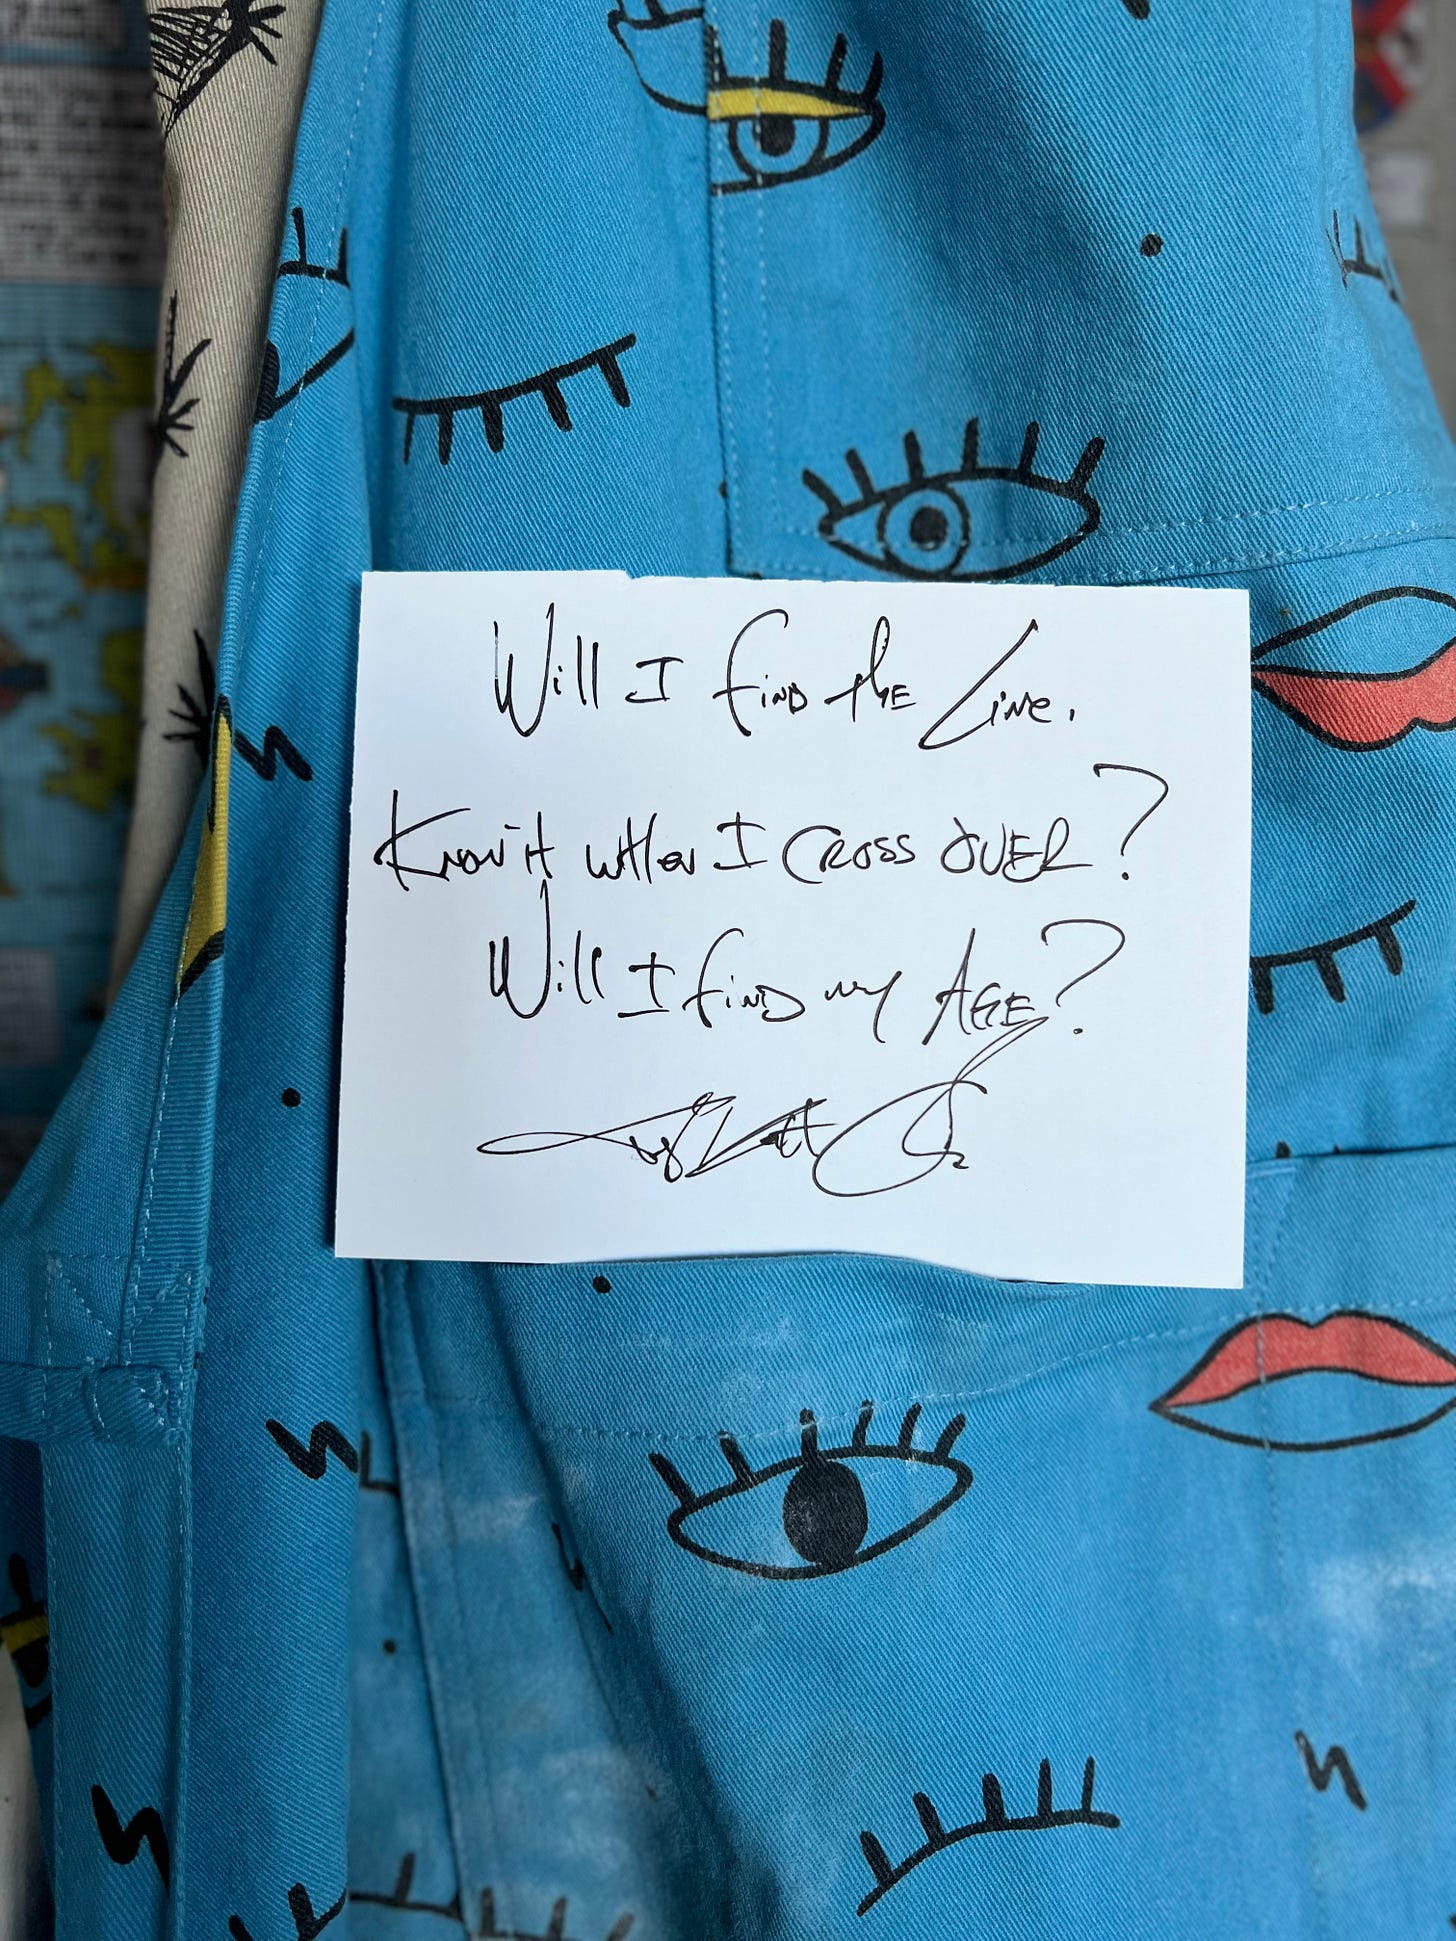 Will I find the Line.
Know it when I cross over?
Will I find my Age?